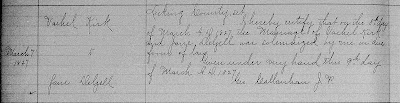 Licking County, ss,
Vachel Kirk I hereby certify that on the 8th day
of March A.D. 1827 the Marriage of Vachel Kirk
March 7 " and Jane Delzell was solemnized by me in due
1827 form of law
Given under my hand this 9th day
Jane Delzell of March A.D. 1827
Geo. Gallanhan J.P.